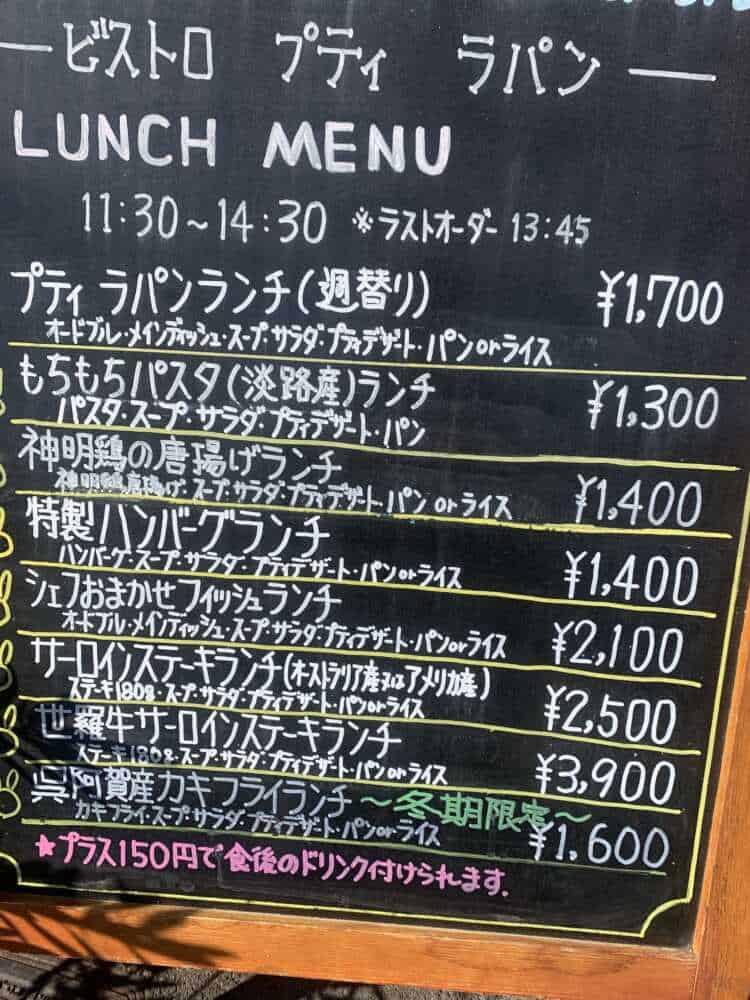 ー ビストロ プティ ラパン ー
LUNCH MENU
11:30～14:30 ※ラストオーダー 13:45
プティ ラパンランチ(週替り) ¥1,700
オードブル・メインディッシュ・スープ・サラダ・プティデザート・パンorライス
もちもちパスタ(淡路産)ランチ ¥1,300
パスタ・スープ・サラダ・プティデザート・パン
神明鶏の唐揚げランチ ¥1,400
神明鶏唐揚げ・スープ・サラダ・プティデザート・パンorライス
特製ハンバーグランチ ¥1,400
ハンバーグ・スープ・サラダ・プティデザート・パンorライス
シェフおまかせフィッシュランチ ¥2,100
オードブル・メインディッシュ・スープ・サラダ・プティデザート・パンorライス
サーロインステーキランチ(オーストラリア産又はアメリカ産) ¥2,500
ステーキ180g・スープ・サラダ・プティデザート・パンorライス
世羅牛サーロインステーキランチ ¥3,900
ステーキ180g・スープ・サラダ・プティデザート・パンorライス
呉阿賀産カキフライランチ ～冬期限定～ ¥1,600
カキフライ・スープ・サラダ・プティデザート・パンorライス
★プラス150円で食後のドリンク付けられます。